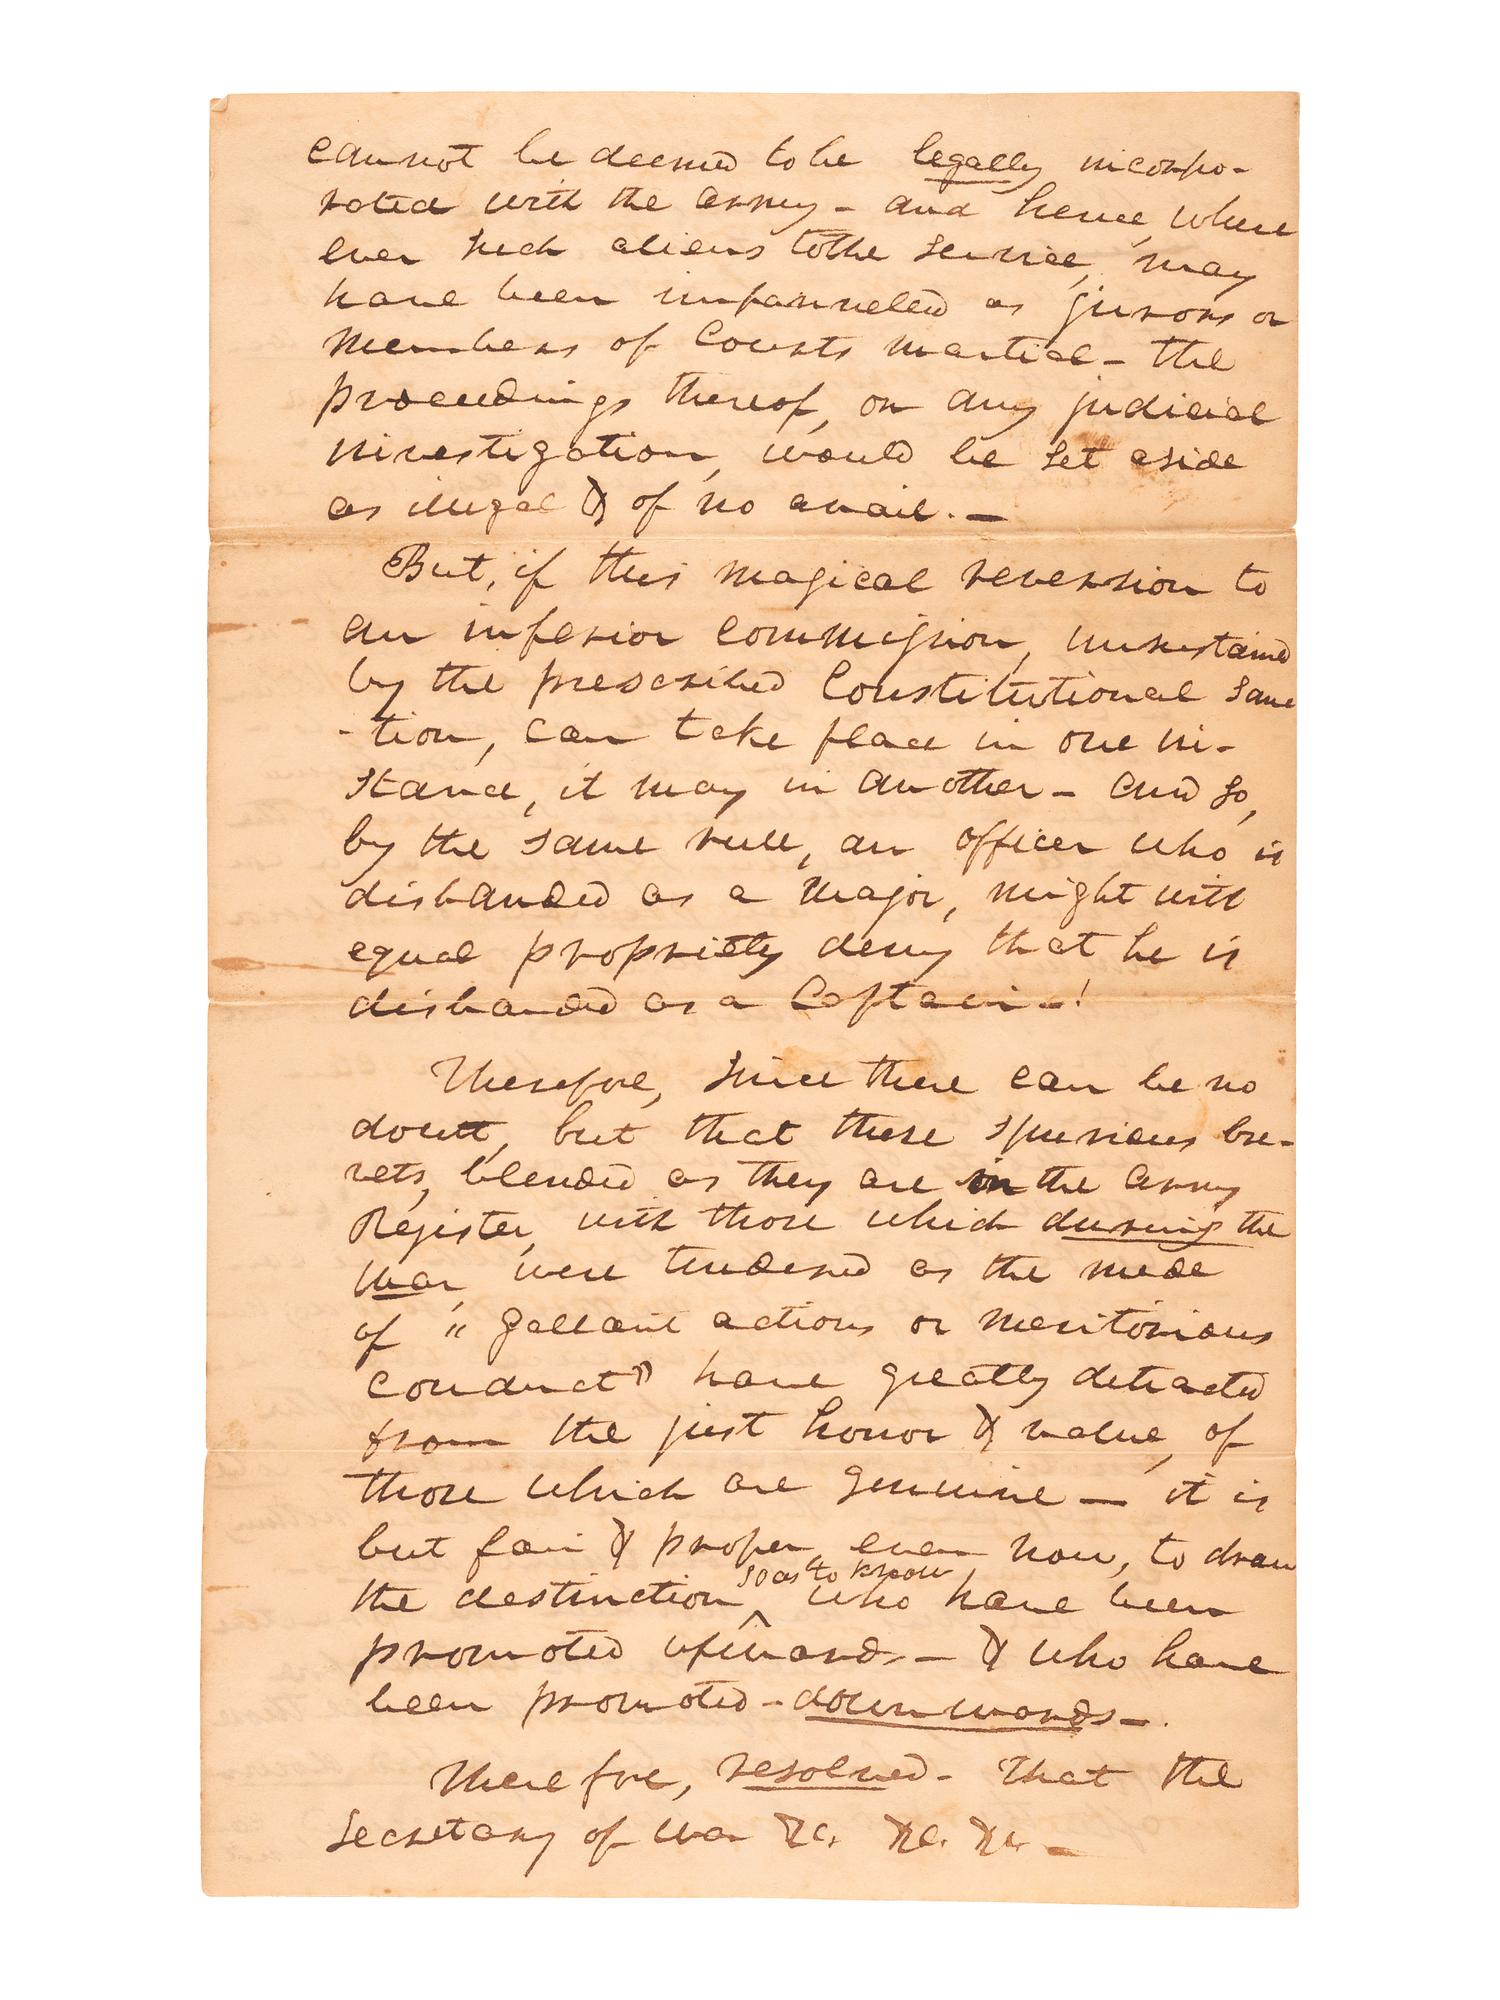 cannot be deemed to be legally incorpo-
rated with the army - and hence, where
ever such aliens to the service, may
have been impanneled as jurors or
Members of Courts martial - the
proceedings thereof, on any judicial
investigation, would be set aside
as illegal & of no avail. -
But, if this magical reversion to
an inferior commission, unsustained
by the prescribed Constitutional sanc
-tion, can take place in one in-
stance, it may in another - and so,
by the same rule, an officer who is
disbanded as a Major, might with
equal propriety deny that he is
disbanded as a Captain -!
Therefore, since there can be no
doubt, but that these spurious bre-
vets, blended as they are in the army
Register, with those which during the
War, were tendered as the mede
of " gallant actions or meritorious
conduct" have greatly detracted
from the just honor & value, of
those which are genuine - it is
but fair & proper, even now, to draw
so as to know
the destinction ^ who have been
promoted upwards - & who have
been promoted - downwards -.
Therefore, resolved - That the
Secretary of War &c. &c. &c. -